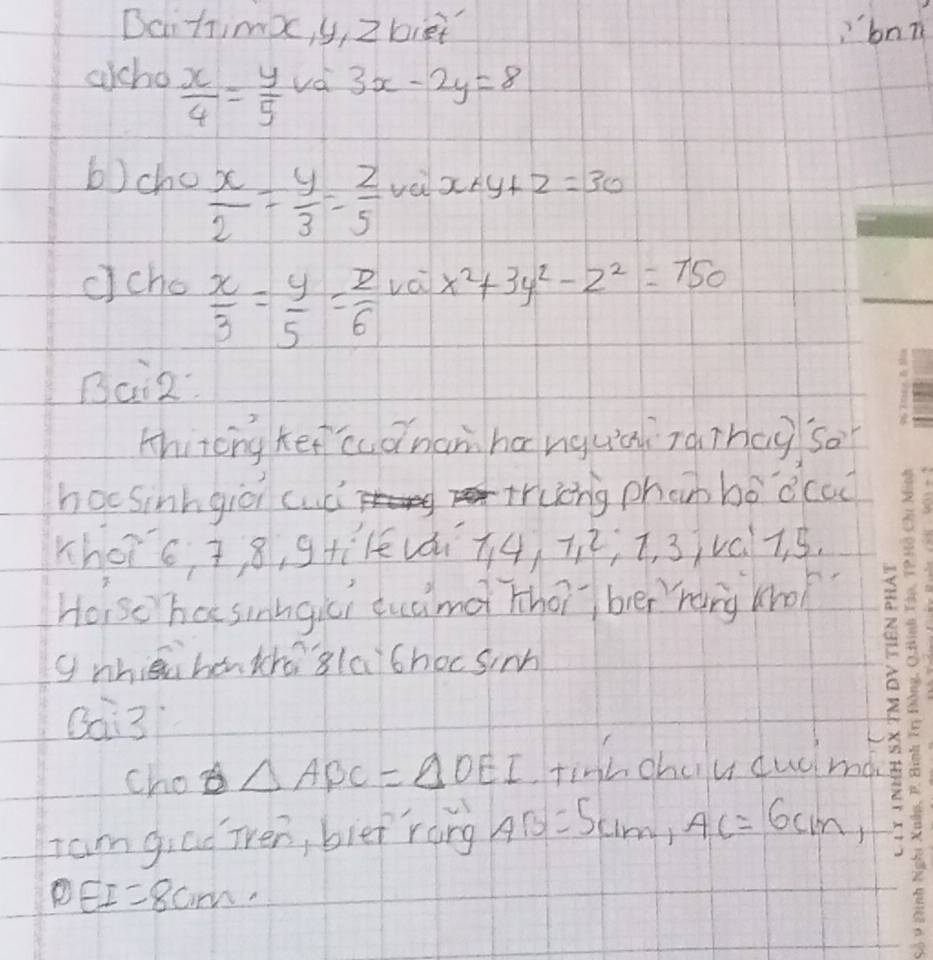 Bài 1 tìm x, y, z biết
a) cho x/4 = y/5 và 3x - 2y = 8
b) cho x/2 = y/3 = z/5 và x + y + z = 30
c) cho x/3 = y/5 = z/6 và x² + 3y² - z² = 150
Bài 2:
Khi tổng kết cuối năm học người ta thấy số
học sinh giỏi của trường phân bố ở các
khối 6, 7, 8, 9 tỉ lệ với 1,4; 1,2; 1,3; và 1,5.
Hỏi số học sinh giỏi của mỗi khối, biết rằng khối
9 nhiều hơn khối 8 là 6 học sinh
Bài 3:
Cho △ ABC = △ DEI. tính chu vi của mỗi
tam giác trên, biết rằng AB = 5cm, AC = 6cm,
EI = 8cm.
SX TM DV TIẾN PHÁT